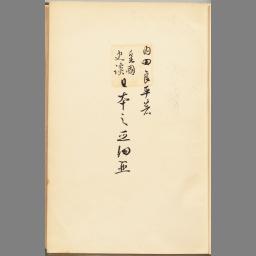 内田良平著
皇國
史談
日本之亜細亜